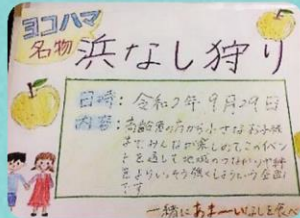 ヨコハマ
名物 浜なし狩り
日時:令和2年9月29日
内容:高齢者の方から小さなお子様
までみんなが楽しめてこのイベン
トを通して地域のつながりや絆
をよりいっそう強くしようという企画
です
一緒にあま〜い